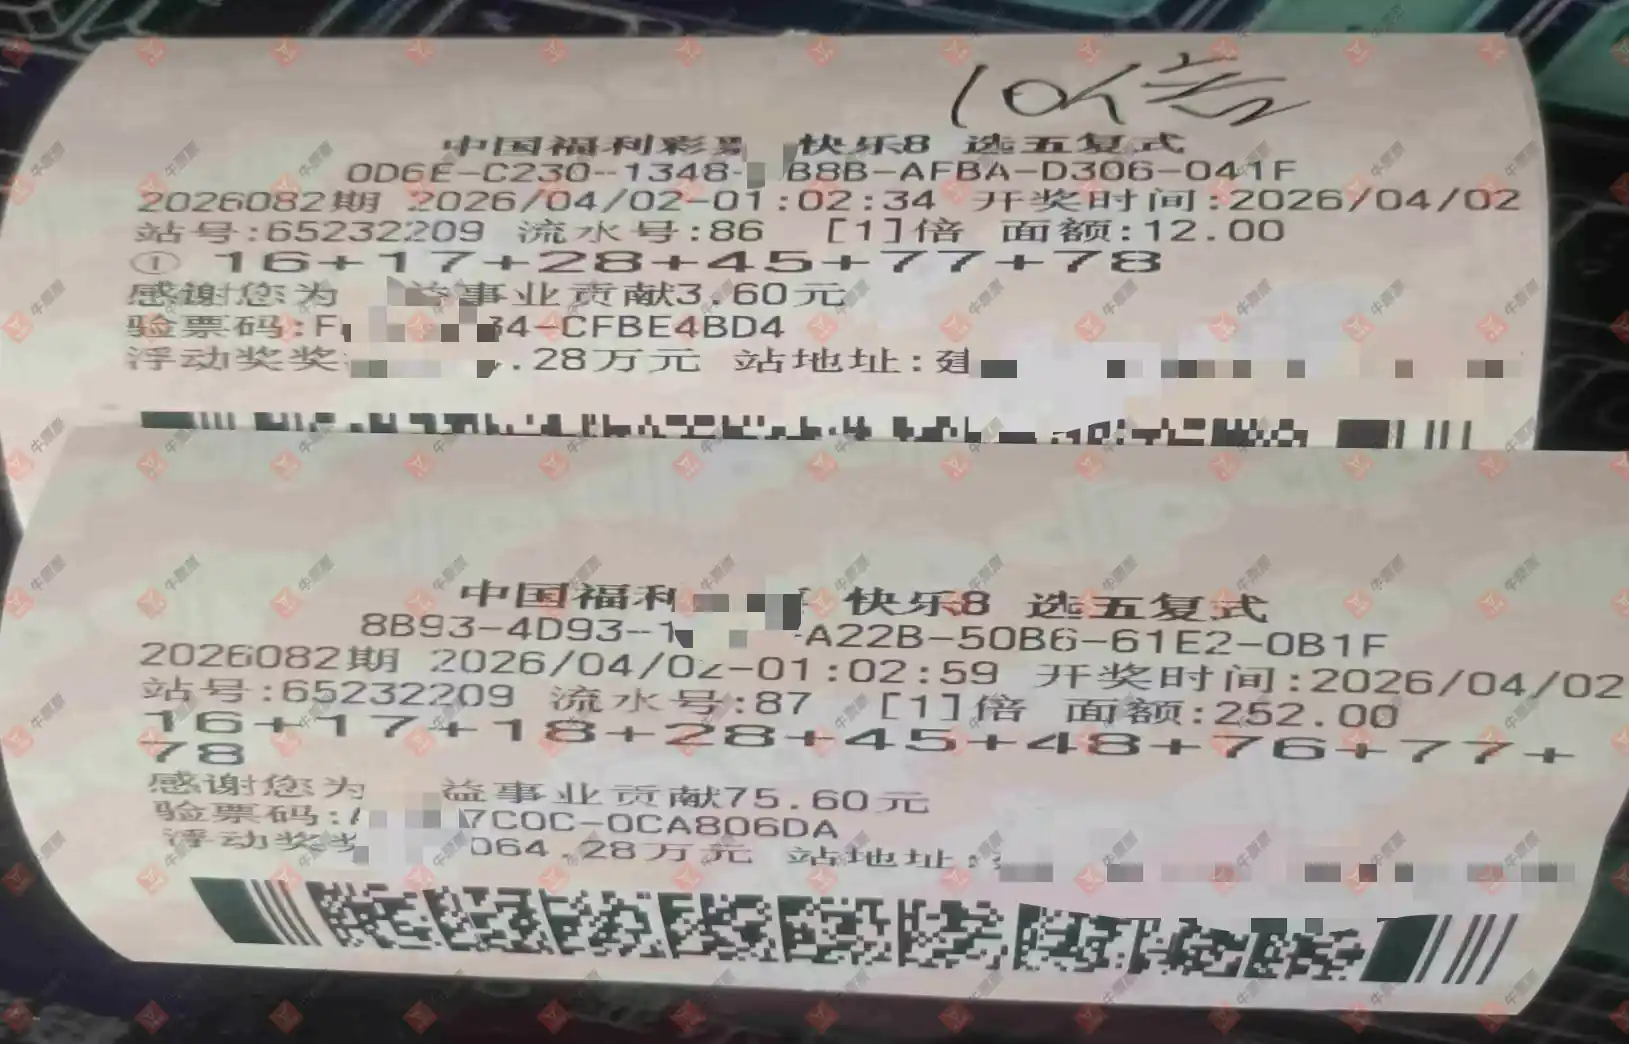 10倍
中国福利彩票 快乐8 选五复式
0D6E-C230-1348- B8B-AFBA-D306-041F
2026082期 2026/04/02-01:02:34 开奖时间:2026/04/02
站号:65232209 流水号:86 [1]倍 面额:12.00
① 16+17+28+45+77+78
感谢您为 益事业贡献3.60元
验票码:F 34-CFBE4BD4
浮动奖奖 .28万元 站地址:建
中国福利 快乐8 选五复式
8B93-4D93-1 -A22B-50B6-61E2-0B1F
2026082期 2026/04/02-01:02:59 开奖时间:2026/04/02
站号:65232209 流水号:87 [1]倍 面额:252.00
16+17+18+28+45+48+76+77+
78
感谢您为 益事业贡献75.60元
验票码: 7C0C-0CA806DA
浮动奖奖 064.28万元 站地址: